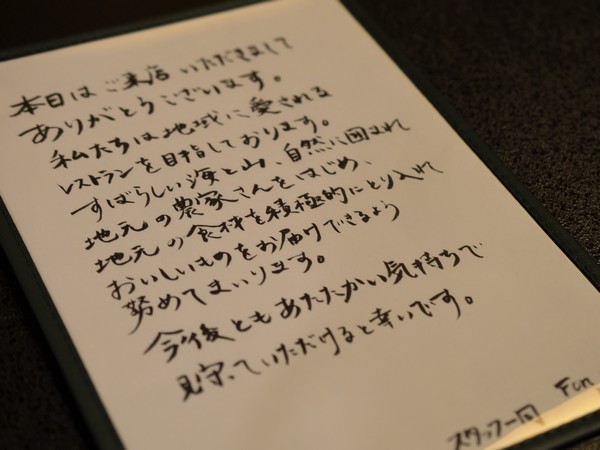 本日はご来店いただきまして
ありがとうございます。
私たちは地域に愛される
レストランを目指しております。
すばらしい海と山、自然に囲まれ
地元の農家さんをはじめ、
地元の食材を積極的にとり入れて
おいしいものをお届けできるよう
努めてまいります。
今後ともあたたかい気持ちで
見守っていただけると幸いです。
スタッフ一同 Fun